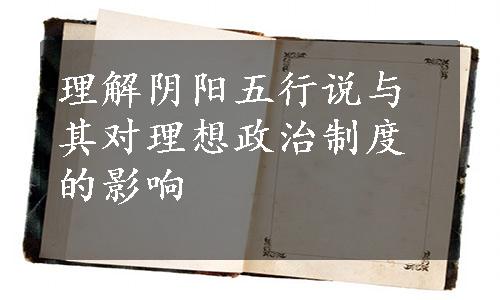 理解阴阳五行说与
其对理想政治制度
的影响